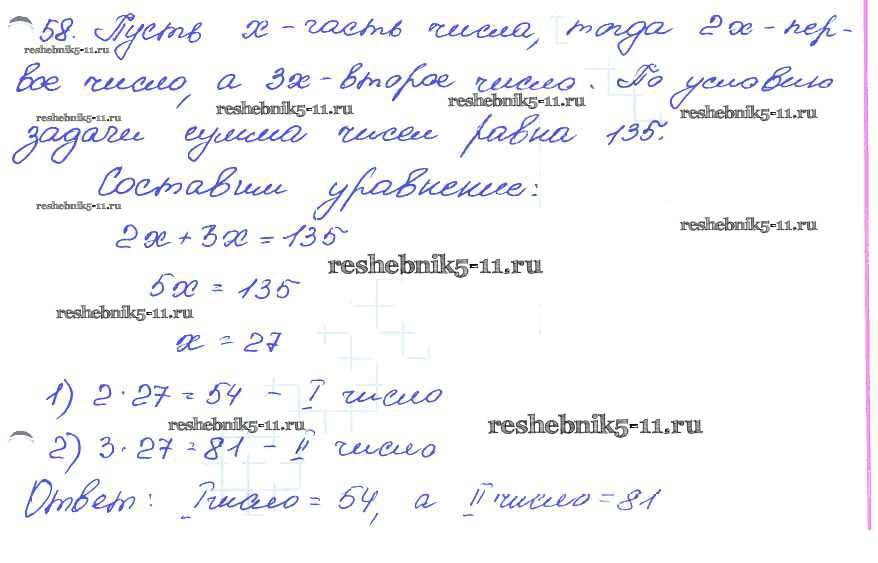 58. Пусть x - часть числа, тогда 2x - пер-
reshebnik5-11.ru
вое число, а 3x - второе число. По условию
reshebnik5-11.ru
reshebnik5-11.ru
reshebnik5-11.ru
reshebnik5-11.ru
задачи сумма чисел равна 135.
Составим уравнение:
reshebnik5-11.ru
reshebnik5-11.ru
2x + 3x = 135
reshebnik5-11.ru
5x = 135
reshebnik5-11.ru
x = 27
1) 2 · 27 = 54 - I число
reshebnik5-11.ru
reshebnik5-11.ru
2) 3 · 27 = 81 - II число
Ответ: I число = 54, а II число = 81